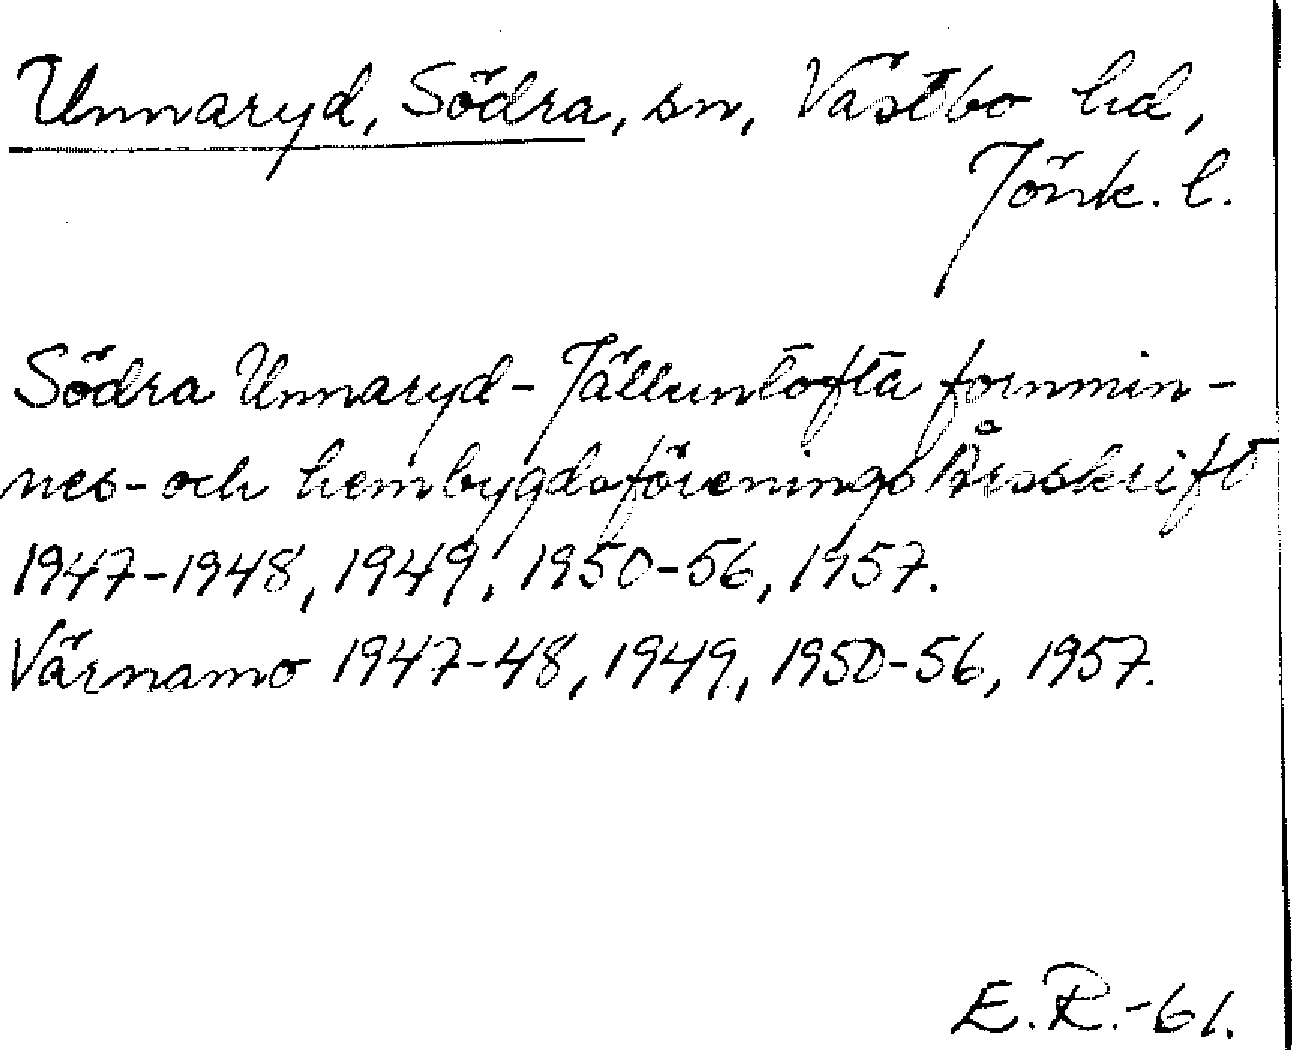 Unnaryd, Södra, sn, Västbo hd,
Jönk. l.
Södra Unnaryd-Jälluntofta fornmin-
nes- och hembygdsförenings Årsskrift
1947-1948, 1949, 1950-56, 1957.
Värnamo 1947-48, 1949, 1950-56, 1957.
E.R.-61.